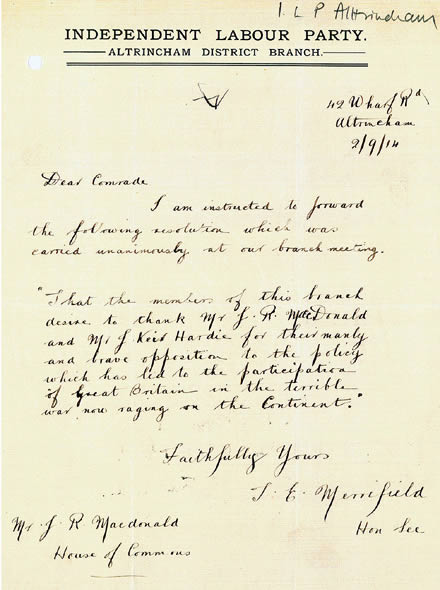 I L P Altrincham
INDEPENDENT LABOUR PARTY.
ALTRINCHAM DISTRICT BRANCH.
42 Wharf Rd
Altrincham
2/9/14
Dear Comrade
I am instructed to forward
the following resolution which was
carried unanimously at our branch meeting.
"That the members of this branch
desire to thank Mr J. R. MacDonald
and Mr J Keir Hardie for their manly
and brave opposition to the policy
which has led to the participation
of Great Britain in the terrible
war now raging on the Continent."
Faithfully Yours
J. E. Merrifield
Hon Sec
Mr J R Macdonald
House of Commons